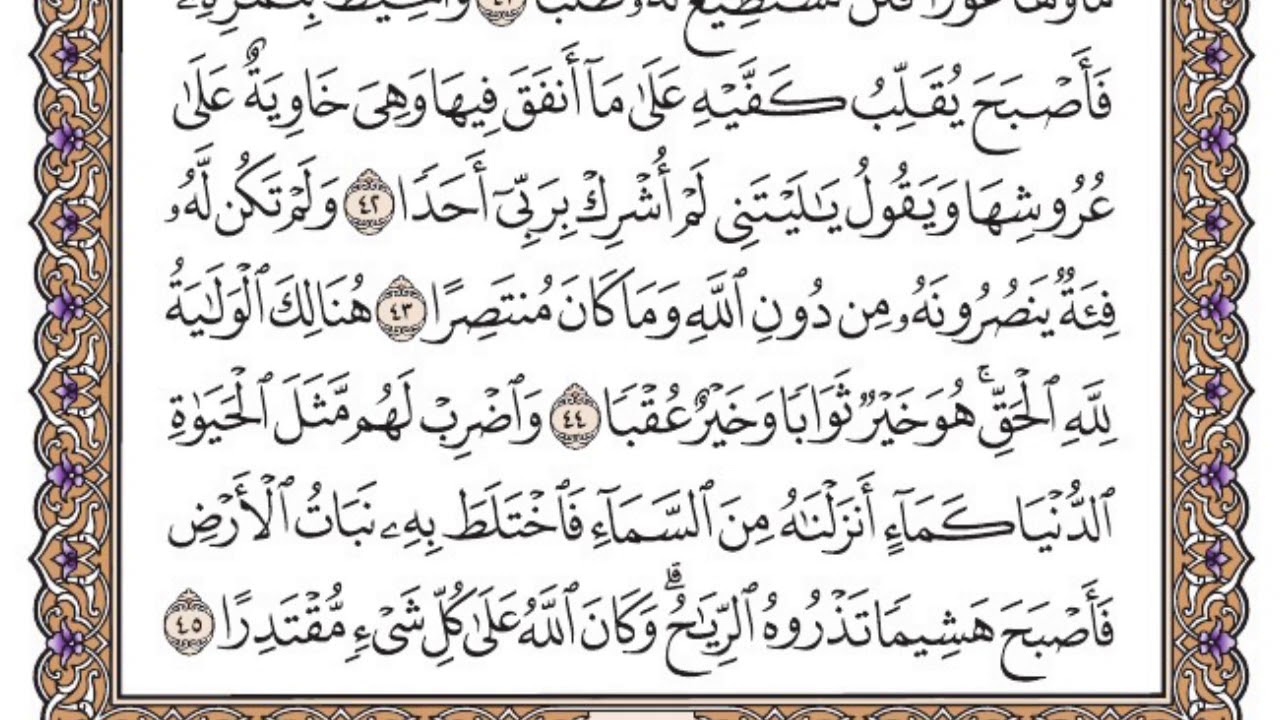 مَآؤُهَا غَوۡرٗا فَلَن تَسۡتَطِيعَ لَهُۥ طَلَبٗا ٤١ وَأُحِيطَ بِثَمَرِهِۦ
فَأَصۡبَحَ يُقَلِّبُ كَفَّيۡهِ عَلَىٰ مَآ أَنفَقَ فِيهَا وَهِيَ خَاوِيَةٌ عَلَىٰ
عُرُوشِهَا وَيَقُولُ يَٰلَيۡتَنِي لَمۡ أُشۡرِكۡ بِرَبِّيٓ أَحَدٗا ٤٢ وَلَمۡ تَكُن لَّهُۥ
فِئَةٞ يَنصُرُونَهُۥ مِن دُونِ ٱللَّهِ وَمَا كَانَ مُنتَصِرًا ٤٣ هُنَالِكَ ٱلۡوَلَٰيَةُ
لِلَّهِ ٱلۡحَقِّۚ هُوَ خَيۡرٞ ثَوَابٗا وَخَيۡرٌ عُقۡبٗا ٤٤ وَٱضۡرِبۡ لَهُم مَّثَلَ ٱلۡحَيَوٰةِ
ٱلدُّنۡيَا كَمَآءٍ أَنزَلۡنَٰهُ مِنَ ٱلسَّمَآءِ فَٱخۡتَلَطَ بِهِۦ نَبَاتُ ٱلۡأَرۡضِ
فَأَصۡبَحَ هَشِيمٗا تَذۡرُوهُ ٱلرِّيَٰحُۗ وَكَانَ ٱللَّهُ عَلَىٰ كُلِّ شَيۡءٖ مُّقۡتَدِرًا ٤٥